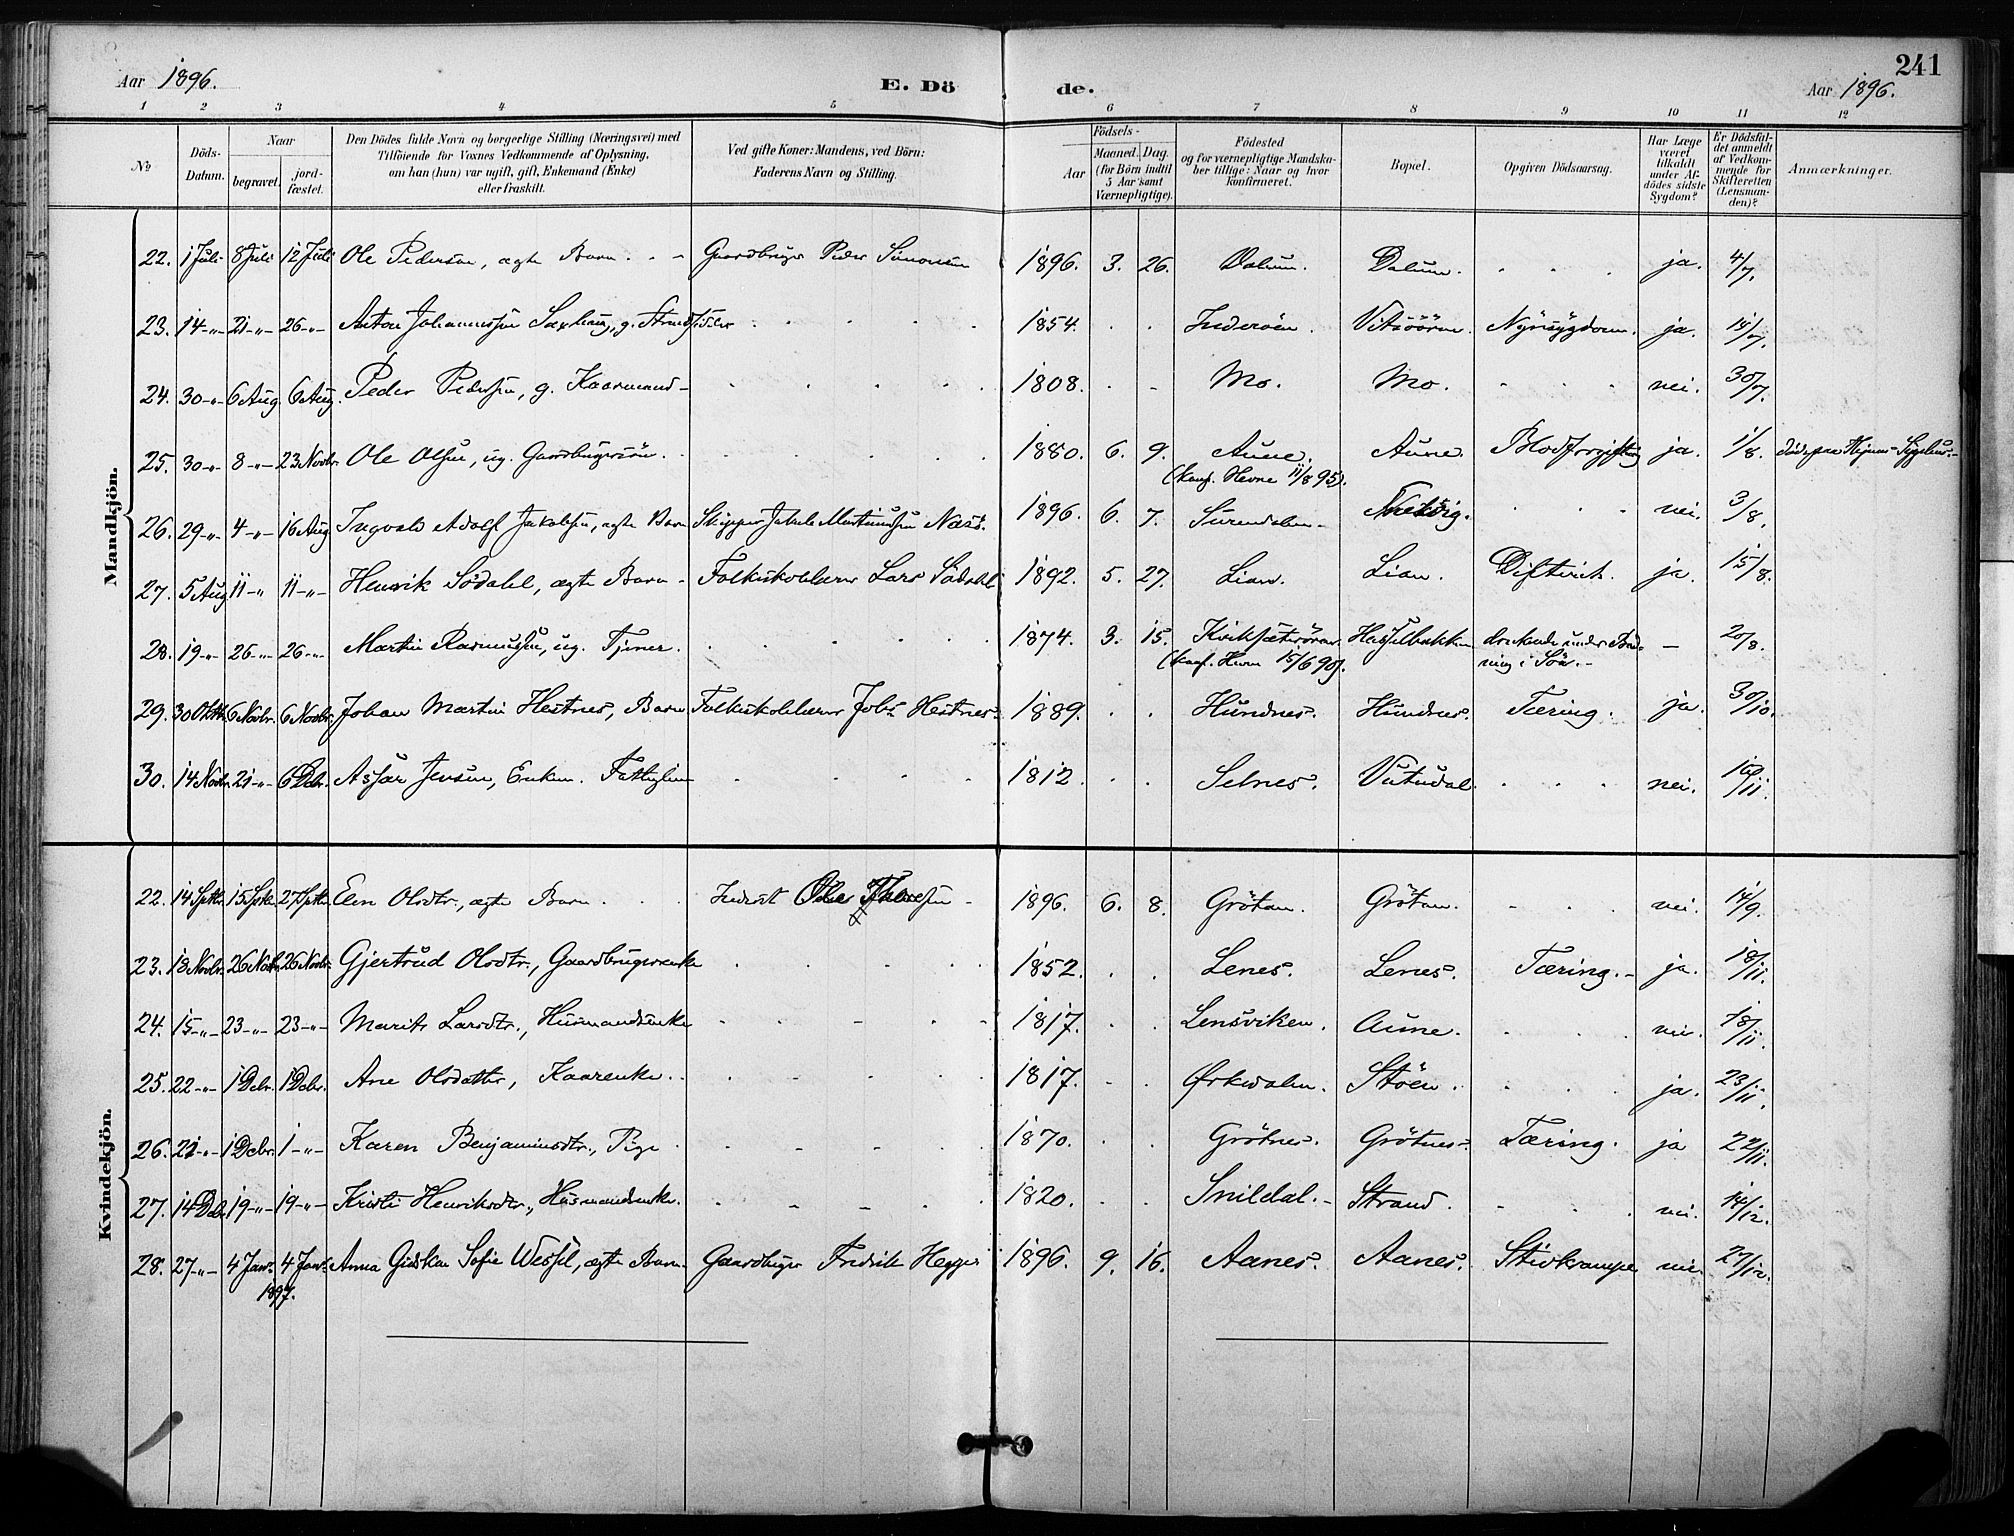 241
Aar 1896. E. Dö de. Aar 1896.
1 2 3 4 5 6 7 8 9 10 11 12
No. Döds-Datum. Naar begravet. jord-fæstet. Den Dödes fulde Navn og borgerlige Stilling (Næringsvei) med Tilföiende for Voxnes Vedkommende af Oplysning, om han (hun) var ugift, gift, Enkemand (Enke) eller fraskilt. Ved gifte Koner: Mandens, ved Börn: Faderens Navn og Stilling. Födsels- Aar Maaned. Dag. (for Börn indtil 5 Aar samt Værnepligtige). Födested og for værnepligtige Mandskaber tillige: Naar og hvor konfirmeret. Bopæl. Opgiven Dödsaarsag. Har Læge været tilkaldt under Afdödes sidste Sygdom? Er Dödsfaldet anmeldt af Vedkommende for Skifteretten (Lensmanden)? Anmærkninger.
Mandkjön.
22. 1 Juli 8 Juli 12 Juli Ole Pedersen, ægte Barn Gaardbruger Peder Simonsen 1896. 3. 26. Dalum. Dalum. ja. 4/7.
23. 14-"- 21-"- 26-"- Anton Johannessen Saxhaug, g. Strandsidder 1854. Inderöen. Vitsöören. Nyresygdom. ja. 15/7.
24. 30-"- 6 Aug. 6 Aug. Peder Pedersen, g. Kaarmand 1808. Mo. Mo. nei. 30/7.
25. 30-"- 8-"- 23 Novbr. Ole Olsen, ug. Gaardbrugersön. 1880. 6. 9. Aune. (konf. Hevne 11/8 95). Aune. Blodforgiftning ja. 1/8. döde paa Sygehus.
26. 29-"- 4-"- 16 Aug. Ingvald Adolf Jakobsen, ægte Barn Skipper Jakob Martinussen Næss. 1896. 6. 7. Surendalen nei. 3/8.
27. 5 Aug 11-"- 11-"- Henrik Södahl, ægte Barn Folkeskolelærer Lars Södahl 1892. 5. 27. Lian. Lian. Difterit. ja. 15/8.
28. 19-"- 26-"- 26-"- Martin Rasmussen, ug. Tjener. 1874. 3. 15. (konf. Hevn 15/6 90). Hasselbakken druknede under Badning i Söa. - 20/8.
29. 30 Oktbr. 6 Novbr. 6 Novbr. Johan Martin Hestnes, Barn Folkeskolelærer Johs Hestnes. 1889. Hundnes. Hundnes. Tæring. ja. 30/10.
30. 14 Novbr. 21-"- 6 Decbr. Assar Jensen, Enkem. Fattiglem 1812. Selnes. Vutudal. nei. 16/11.
Kvindekjön.
22. 14 Sptbr. 15 Sptbr. 27 Sptbr. Elen Olsdtr., ægte Barn Inderst Ole 1896. 6. 8. Grötan. Grötan. nei. 14/9.
23. 18 Novbr. 26 Novbr. 26 Novbr. Gjertrud Olsdtr., Gaardbrugerenke 1852. Lenes. Lenes. Tæring. ja. 18/11.
24. 15-"- 23-"- 23-"- Marit Larsdtr., Husmandsenke 1817. Lensviken. Aune. nei. 18/11.
25. 22-"- 1 Debr. 1 Debr. Ane Olsdatter, Kaarenke. 1817. Örkedalen. Stöen. ja. 23/11.
26. 21-"- 1 Debr. 1-"- Karen Benjaminsdtr., Pige 1870. Grötnes. Grötnes. Tæring. ja 22/11.
27. 14 Debr. 19-"- 19-"- Kristi Henriksdtr., Husmandsenke. 1820. Snildal. Strand. nei. 14/12.
28. 27-"- 4 Janr. 4 Janr. 1897. Anna Gidsken Sofie Wessel, ægte Barn Gaardbruger Fredrik Hegge 1896. 9. 16. Aanes. Aanes. Stivkrampe nei. 27/12.